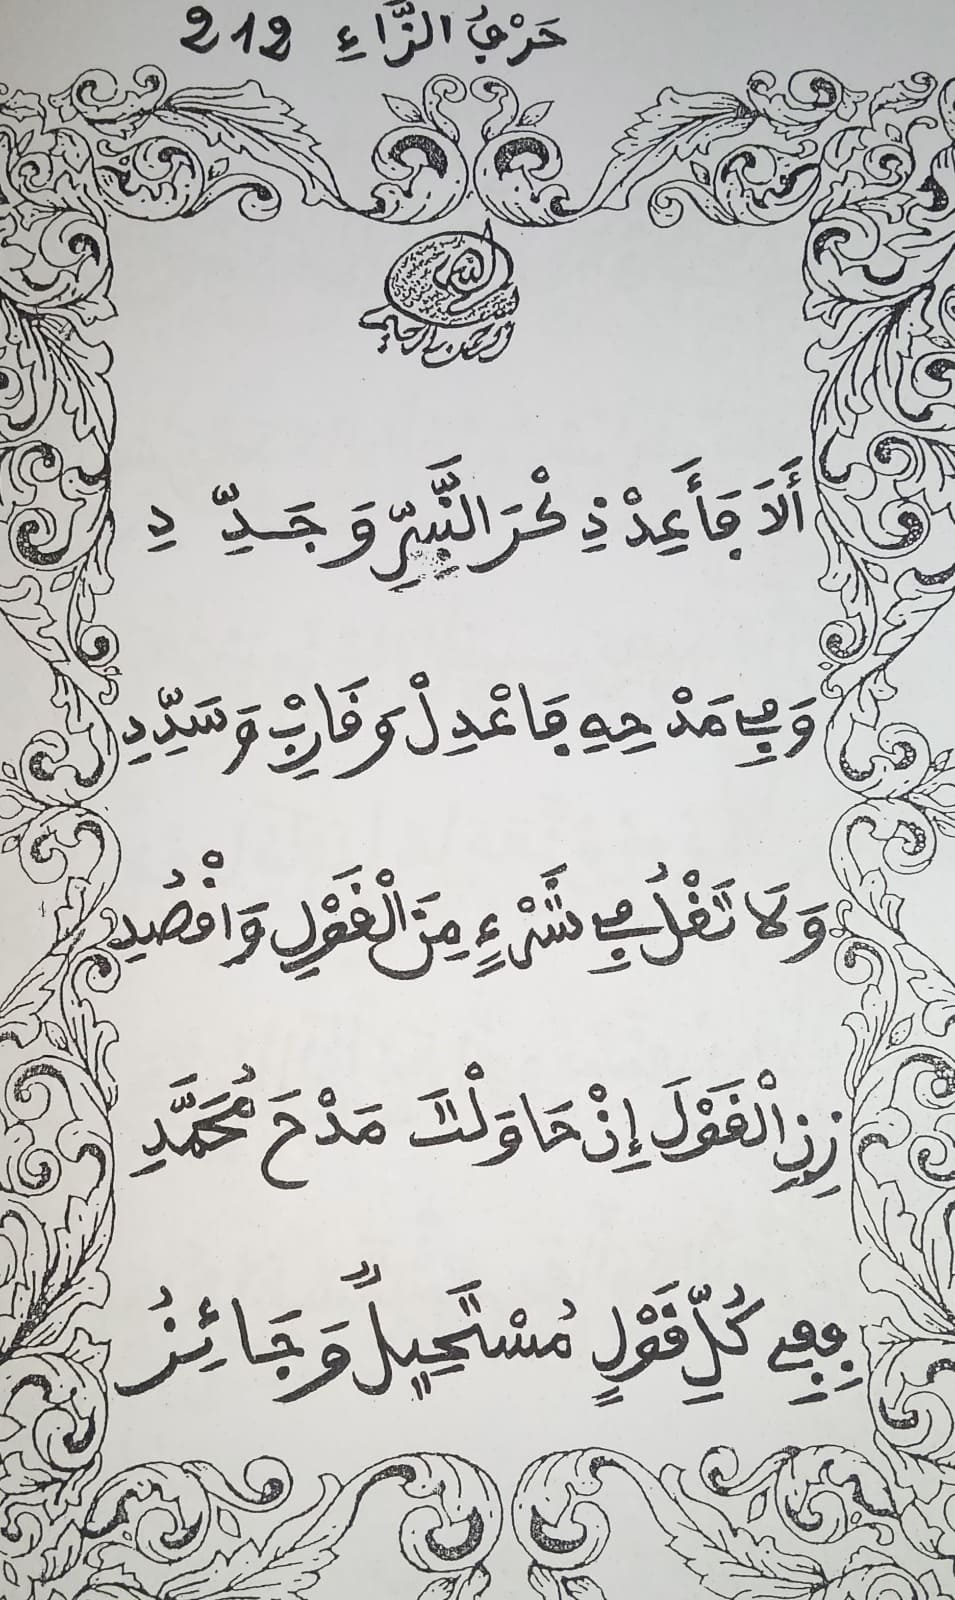 حَرْفُ الزَّاءِ 212
الله
الرحمن الرحيم
أَلَا فَأَعِدْ ذِكْرَ النَّبِيِّ وَجَدِّدِ
وَفِي مَدْحِهِ فَاعْدِلْ وَقَارِبْ وَسَدِّدِ
وَلَا تَغْلُ فِي شَيْءٍ مِنَ الْقَوْلِ وَاقْصُدِ
زِنِ الْقَوْلَ إِنْ حَاوَلْتَ مَدْحَ مُحَمَّدِ
فَفِي كُلِّ قَوْلٍ مُسْتَحِيلٌ وَجَائِزُ